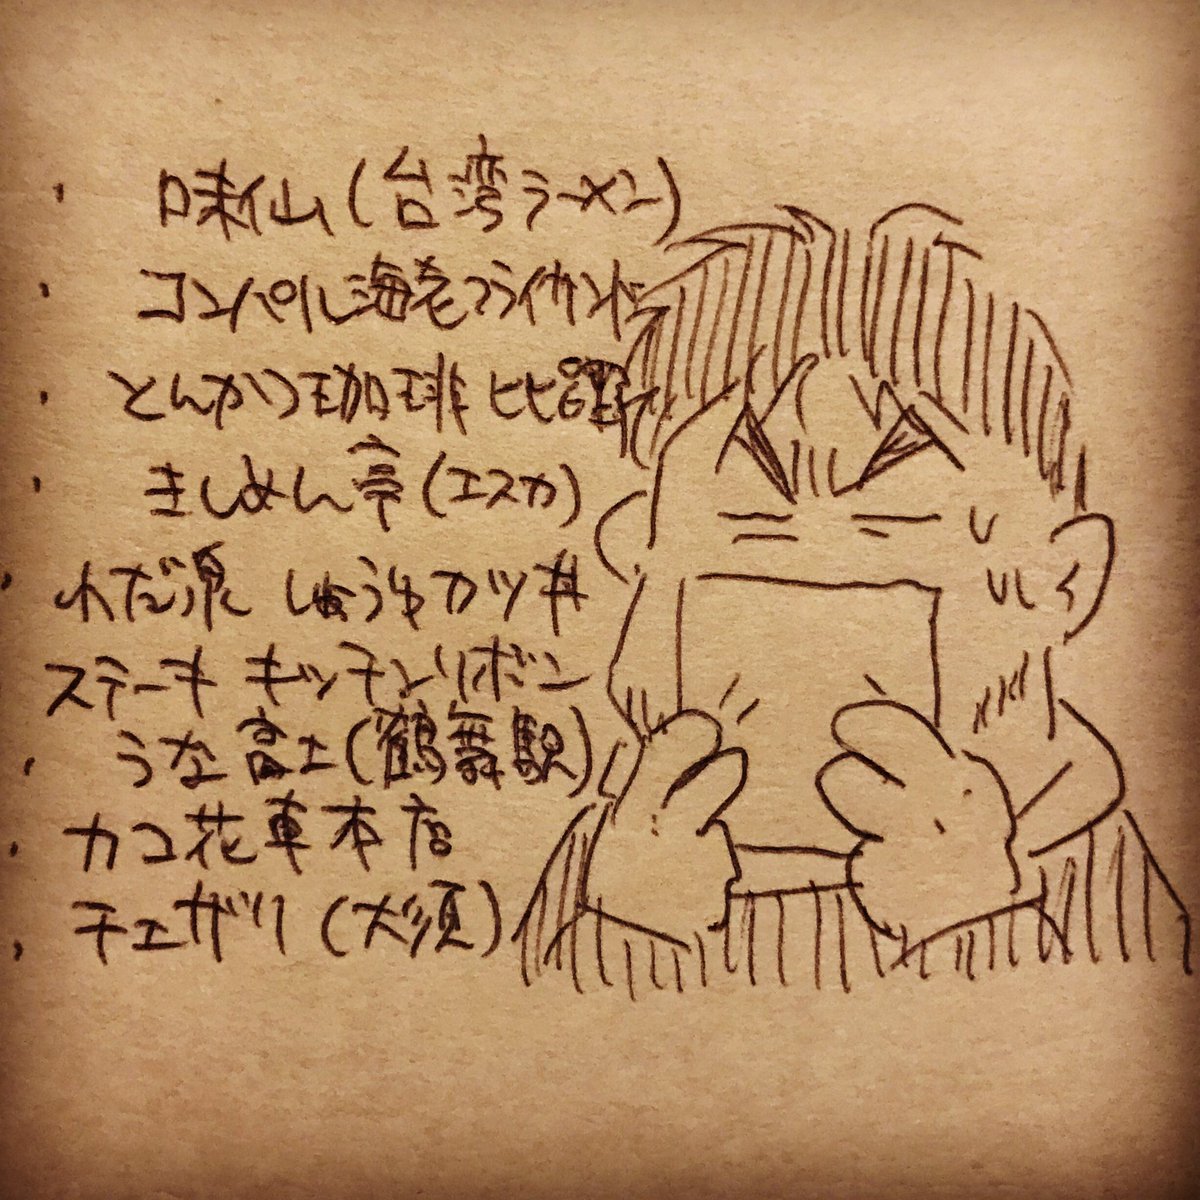 ・味仙(台湾ラーメン)
・コンパル海老フライサンド
・とんかつ珈琲 比呂野
・きしめん亭(エスカ)
・わだ泉 しょうゆカツ丼
ステーキ キッチンリボン
・うな富士(鶴舞駅)
・カコ花車本店
・チェザリ(大須)